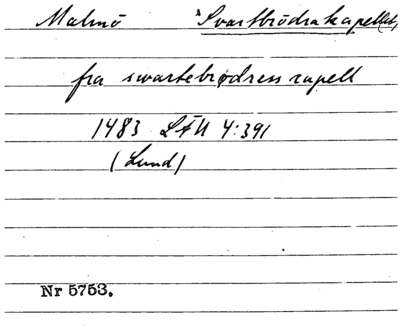 Malmö Svartbrödrakapellet,
fra swartebrødress capell
1483 LÄU 4:391
(Lund)
Nr 5753.